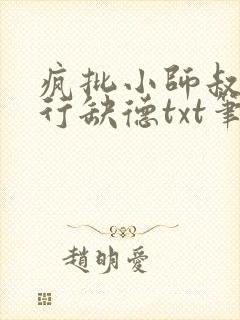 疯批小師叔
行缺德txt筆
趙明愛